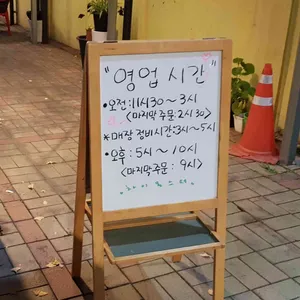 "영업시간"
•오전:11시30~3시
<마지막주문:2시30>
*매장정비시간:3시~5시
•오후:5시~10시
<마지막주문:9시>